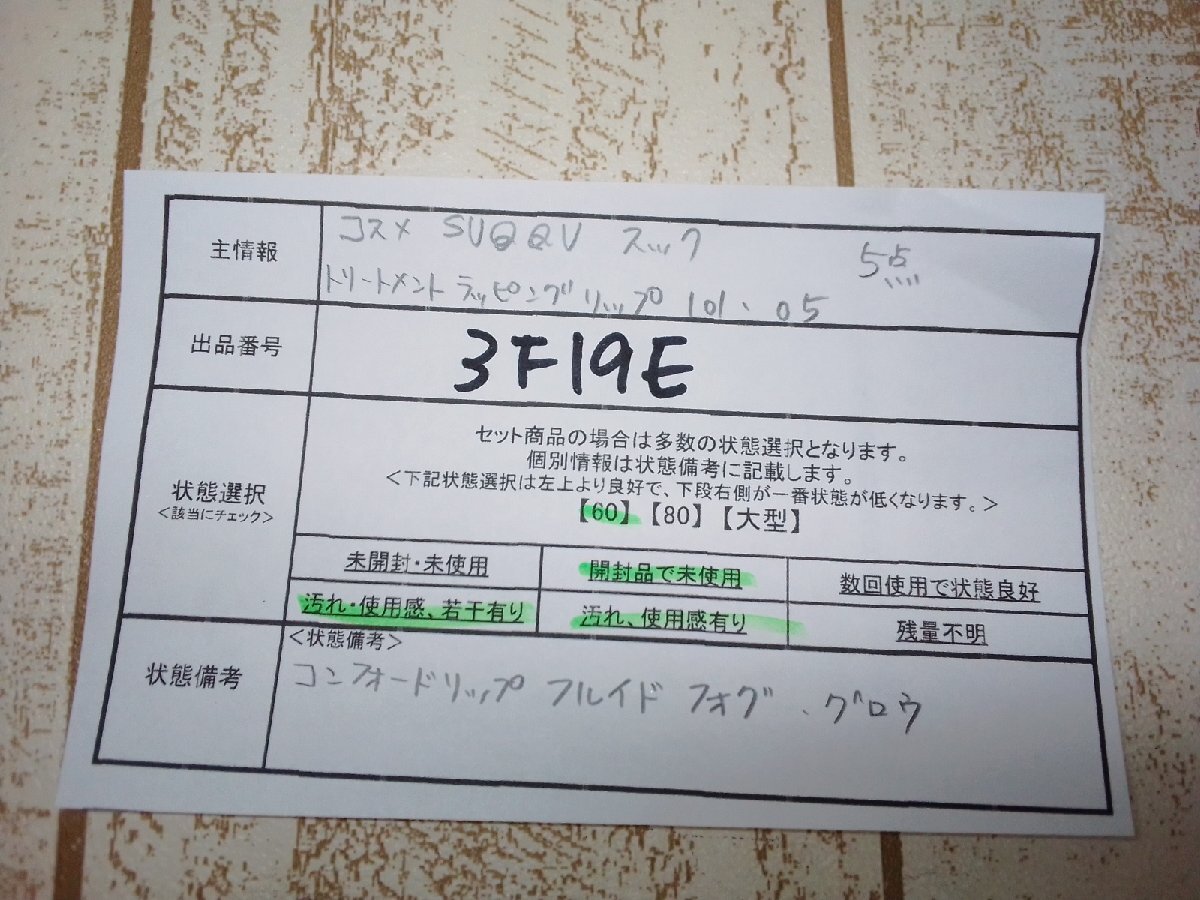 主情報
コスメ SUQQU スック 5点
トリートメント ラッピングリップ 101・05
出品番号
3F19E
状態選択
<該当にチェック>
セット商品の場合は多数の状態選択となります。
個別情報は状態備考に記載します。
<下記状態選択は左上より良好で、下段右側が一番状態が低くなります。>
【60】【80】【大型】
未開封・未使用 開封品で未使用 数回使用で状態良好
汚れ・使用感、若干有り 汚れ、使用感有り 残量不明
状態備考
<状態備考>
コンフォードリップ フルイド フォグ・グロウ